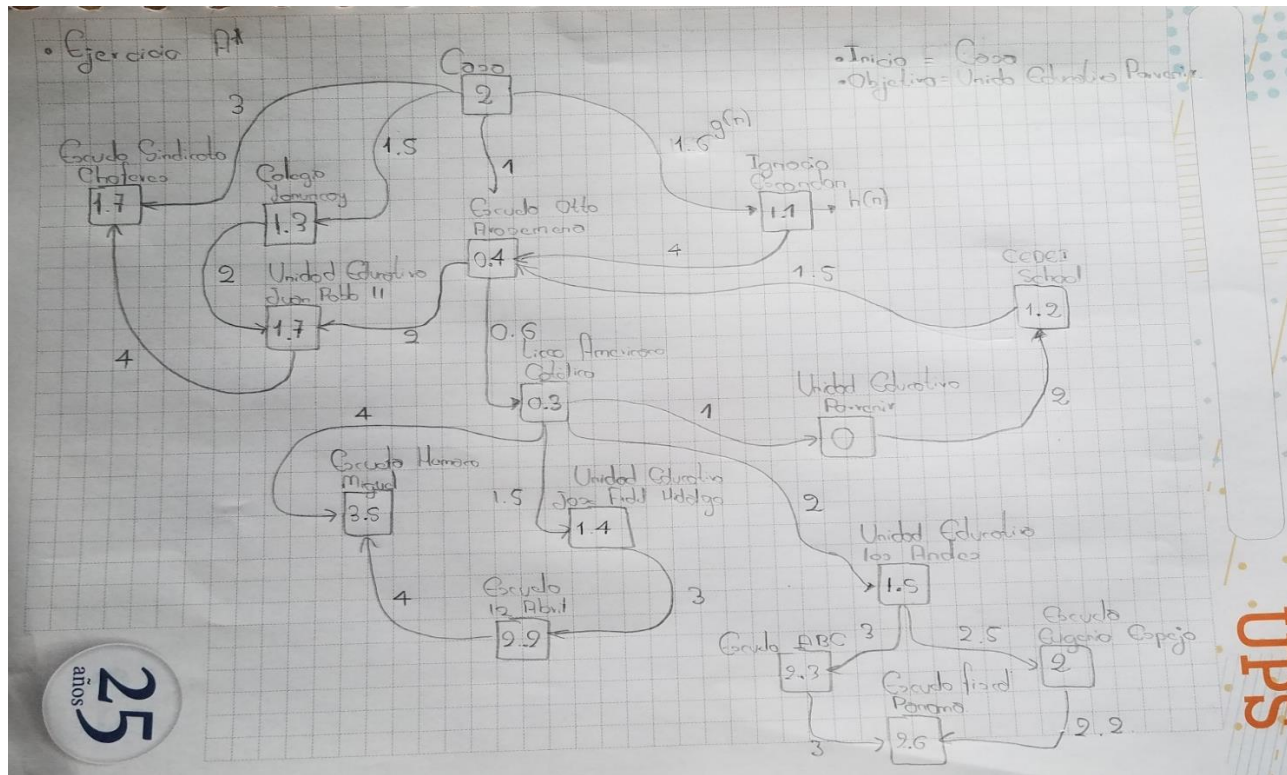 • Ejercicio A*
• Inicio = Casa
• Objetivo = Unida Educativa Porvenir
Casa
2
3
1.5
1
1.6 g(n)
Escuela Sindicato
Choferes
1.7
Colegio
1.3
Escuela Otto
Arosemena
0.4
Ignacio
Escandon
1.1
h(n)
4
1.5
CEDEI
School
1.2
2
Unidad Educativa
Juan Pablo II
1.7
2
4
0.6
Liceo Americano
Catolico
0.3
1
Unidad Educativa
Porvenir
0
2
4
Escuela Humero
Miguel
3.5
1.5
Unidad Educativa
Jose Fidel Hidalgo
1.4
2
Unidad Educativa
los Andes
1.5
4
Escuela
12 Abril
2.2
3
Escuela ABC
2.3
3
2.5
Escuela
Eugenio Espejo
2
Escuela fiscal
Panama
2.6
3
2.2
25
años
UPS